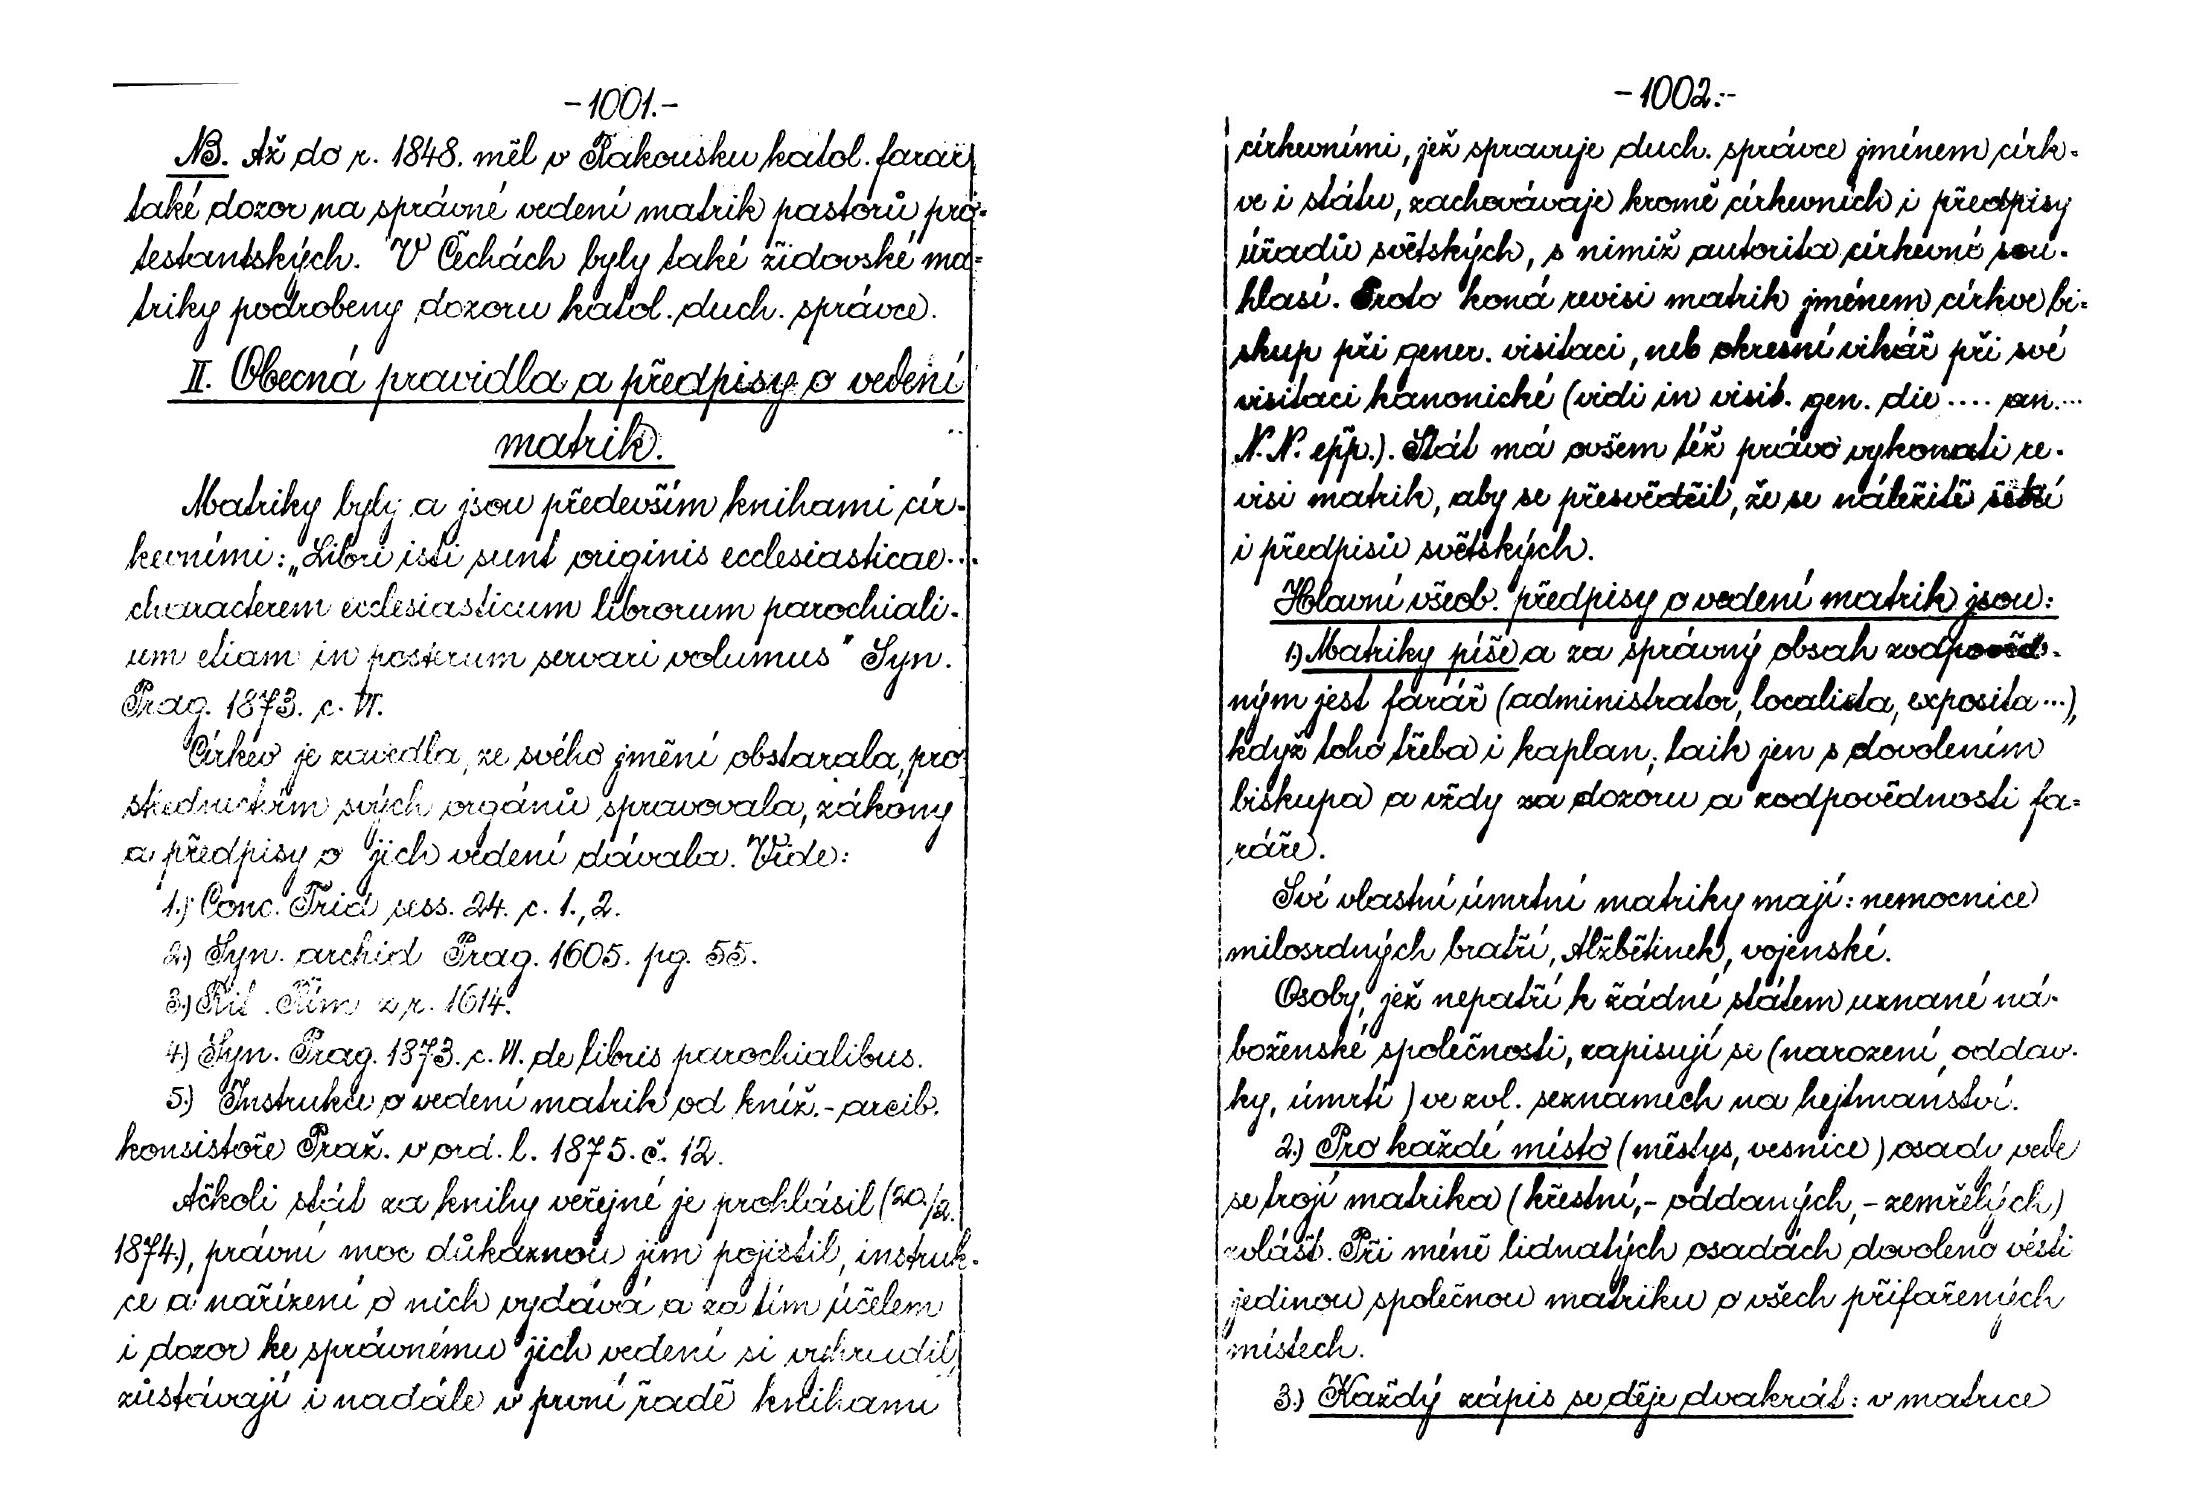 -1001.-
NB. Až do r. 1848. měl v Rakousku katol. farář
také dozor na správné vedení matrik pastorů pro-
testantských. V Čechách byly také židovské ma-
triky podrobeny dozoru katol. duch. správce.
II. Obecná pravidla a předpisy o vedení
matrik.
Matriky byly a jsou především knihami cír-
kevními: „Libri isti sunt originis ecclesiasticae...
characterem ecclesiasticum librorum parochiali-
um etiam in posterum servari volumus" Syn.
Prag. 1873. c. VI.
Církev je zavedla, ze svého jmění obstarala, pro-
střednictvím svých orgánů spravovala, zákony
a předpisy o jich vedení dávala. Vide:
1.) Conc. Trid sess. 24. c. 1., 2.
2.) Syn. archid Prag. 1605. pg. 55.
3.) Rit. Řím z r. 1614.
4.) Syn. Prag. 1873. c. VI. de libris parochialibus.
5.) Instrukce o vedení matrik od kníž.-arcib.
konsistoře Praž. v ord. l. 1875. č. 12.
Ačkoli stát za knihy veřejné je prohlásil (20./2.
1874.), právní moc důkaznou jim pojistil, instruk-
ce a nařízení o nich vydává a za tím účelem
i dozor ke správnému jich vedení si vyhradil,
zůstávají i nadále v první řadě knihami
-1002.-
církevními, jež spravuje duch. správce jménem círk-
ve i státu, zachovávaje kromě církevních i předpisy
úřadů světských, s nimiž autorita církevně sou-
hlasí. Proto koná revisi matrik jménem církve bi-
skup při gener. visitaci, neb okresní vikář při své
visitaci kanonické (vidi in visit. gen. die .... an....
N. N. epp.). Stát má ovšem též právo vykonati re-
visi matrik, aby se přesvědčil, že se náležitě šetří
i předpisů světských.
Hlavní všeob. předpisy o vedení matrik jsou:
1.) Matriky píše a za správný obsah zodpověd-
ným jest farář (administrator, localista, exposita ...),
když toho třeba i kaplan; laik jen s dovolením
biskupa a vždy za dozoru a zodpovědnosti fa-
ráře.
Své vlastní úmrtní matriky mají: nemocnice
milosrdných bratří, Alžbětinek, vojenské.
Osoby, jež nepatří k žádné státem uznané ná-
boženské společnosti, zapisují se (narození, oddav-
ky, úmrtí) ve zvl. seznamech na hejtmanství.
2.) Pro každé místo (městys, vesnice) osady vede
se trojí matrika (křestní,- oddaných,- zemřelých)
zvlášť. Při méně lidnatých osadách dovoleno vésti
jedinou společnou matriku o všech přifařených
místech.
3.) Každý zápis se děje dvakrát: v matrice